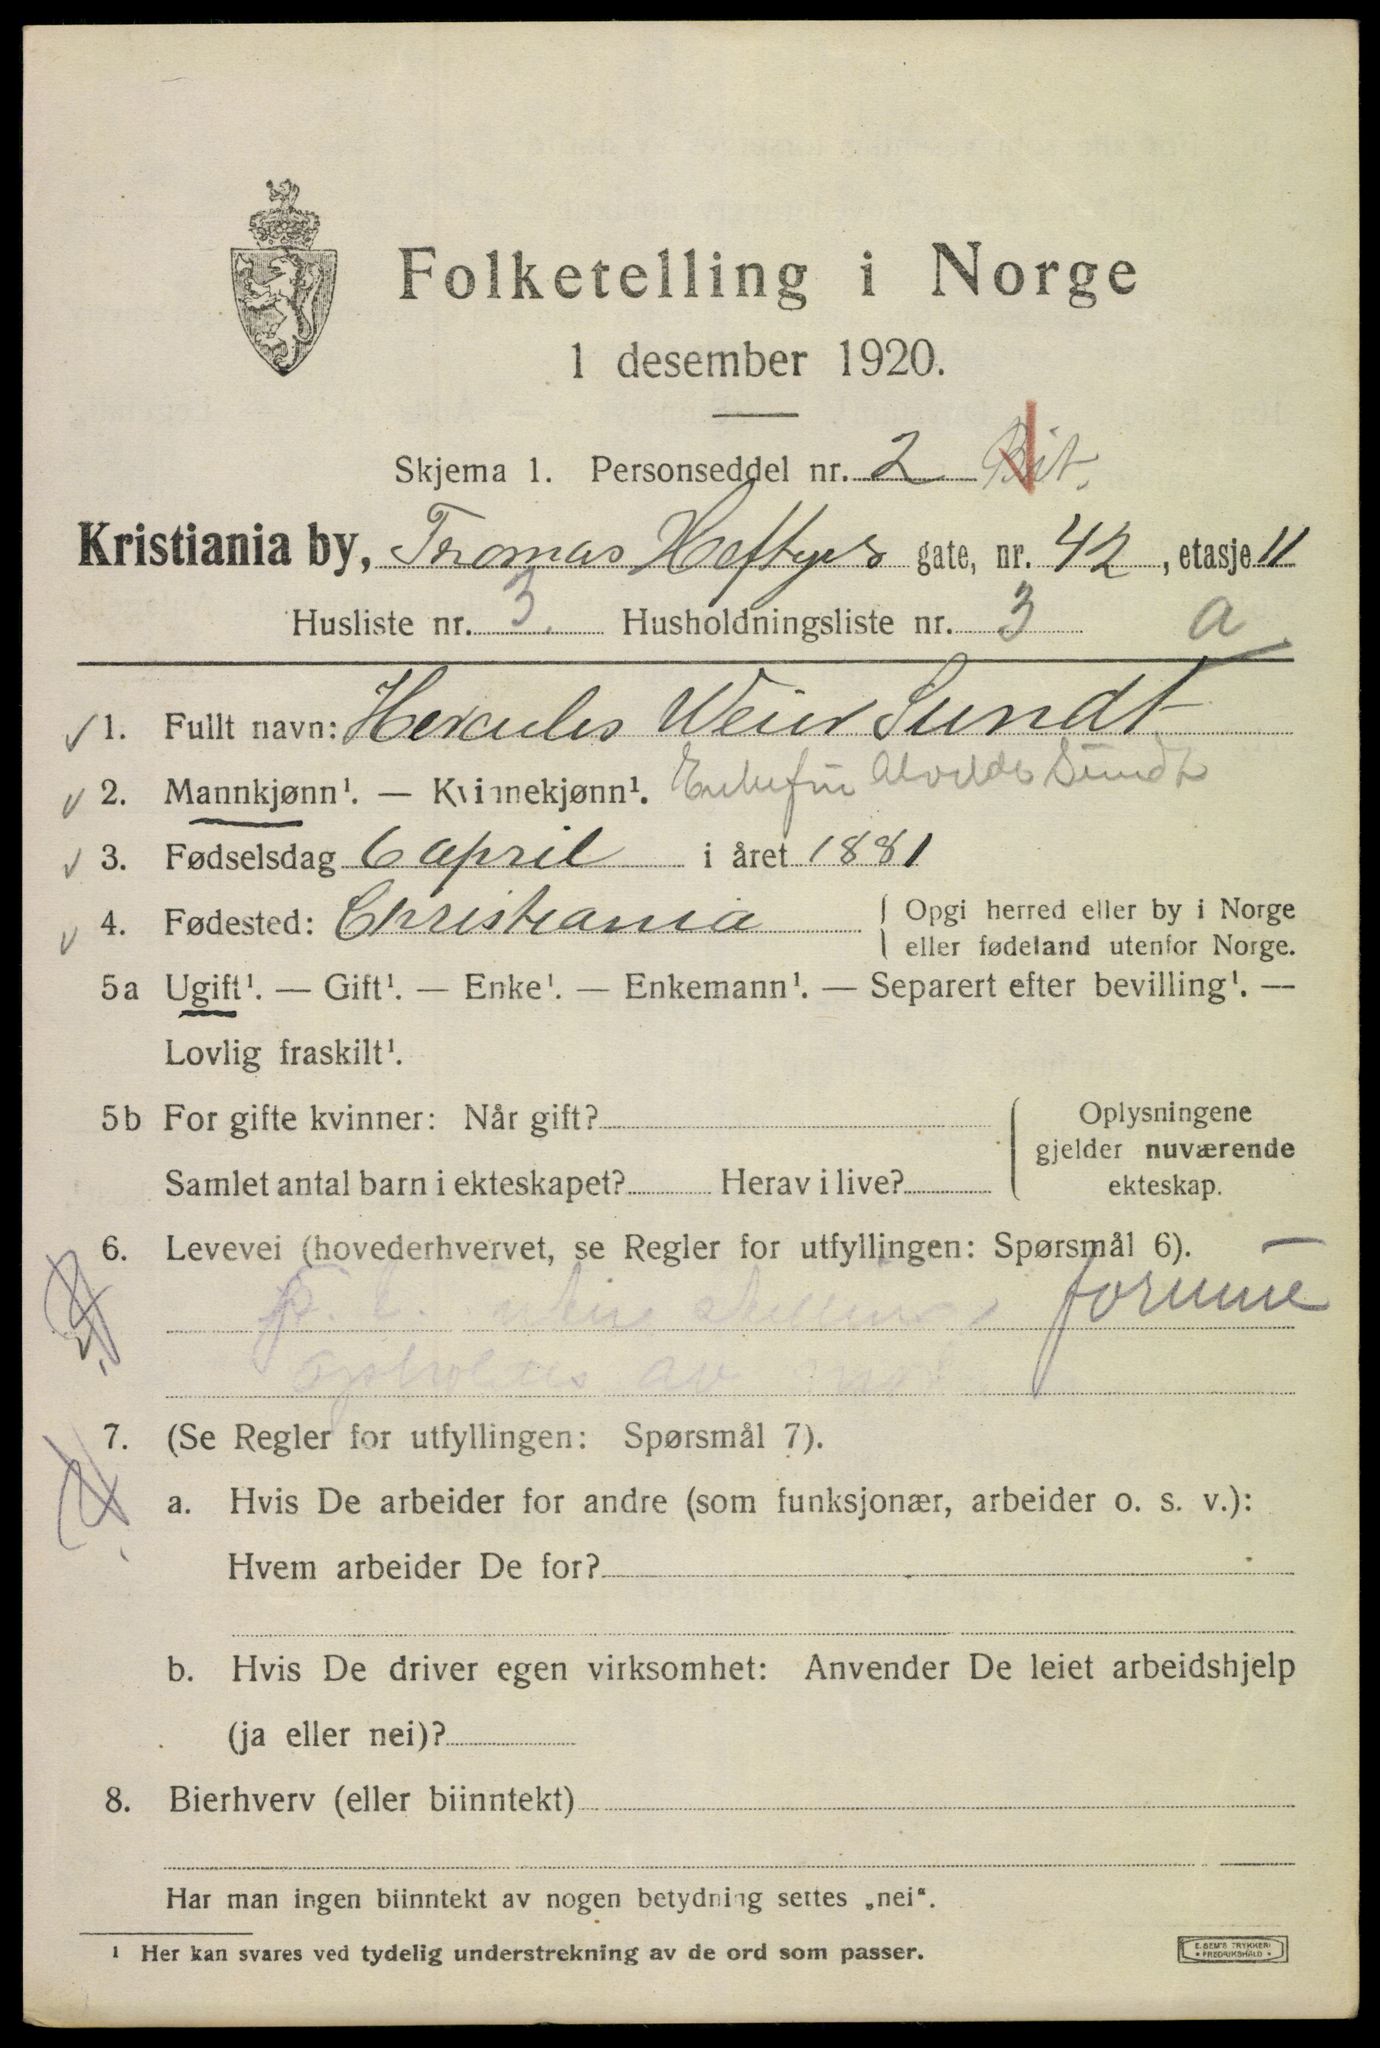 Folketelling i Norge
1 desember 1920.
Skjema 1. Personseddel nr. 2
Kristiania by, Thomas Heftyes gate, nr. 42, etasje 11
Husliste nr. 3. Husholdningsliste nr. 3 a
1. Fullt navn: Hercules Weier Sundt
2. Mannkjønn¹. — Kvinnekjønn¹. Enkefru Alvilde Sundt
3. Fødselsdag 6 april i året 1881
4. Fødested: Christiania { Opgi herred eller by i Norge
eller fødeland utenfor Norge.
5a Ugift¹. — Gift¹. — Enke¹. — Enkemann¹. — Separert efter bevilling¹. —
Lovlig fraskilt¹.
5b For gifte kvinner: Når gift?
Samlet antal barn i ekteskapet? Herav i live?
Oplysningene
gjelder nuværende
ekteskap.
6. Levevei (hovederhvervet, se Regler for utfyllingen: Spørsmål 6).
formue
av
7. (Se Regler for utfyllingen: Spørsmål 7).
a. Hvis De arbeider for andre (som funksjonær, arbeider o. s. v.):
Hvem arbeider De for?
b. Hvis De driver egen virksomhet: Anvender De leiet arbeidshjelp
(ja eller nei)?
8. Bierhverv (eller biinntekt)
Har man ingen biinntekt av nogen betydning settes „nei“.
¹ Her kan svares ved tydelig understrekning av de ord som passer.
E. SEM'S TRYKKERI
• FREDRIKSHALD •